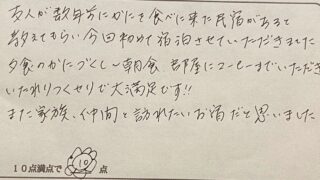 友人が数年前にかにを食べに来た民宿があると
教えてもらい今回初めて宿泊させていただきました
夕食のかにづくし〜朝食、部屋にコーヒーまでいただき
いたれりつくせりで大満足です!!
また家族、仲間と訪れたいお宿だと思いました
10点満点で 10 点